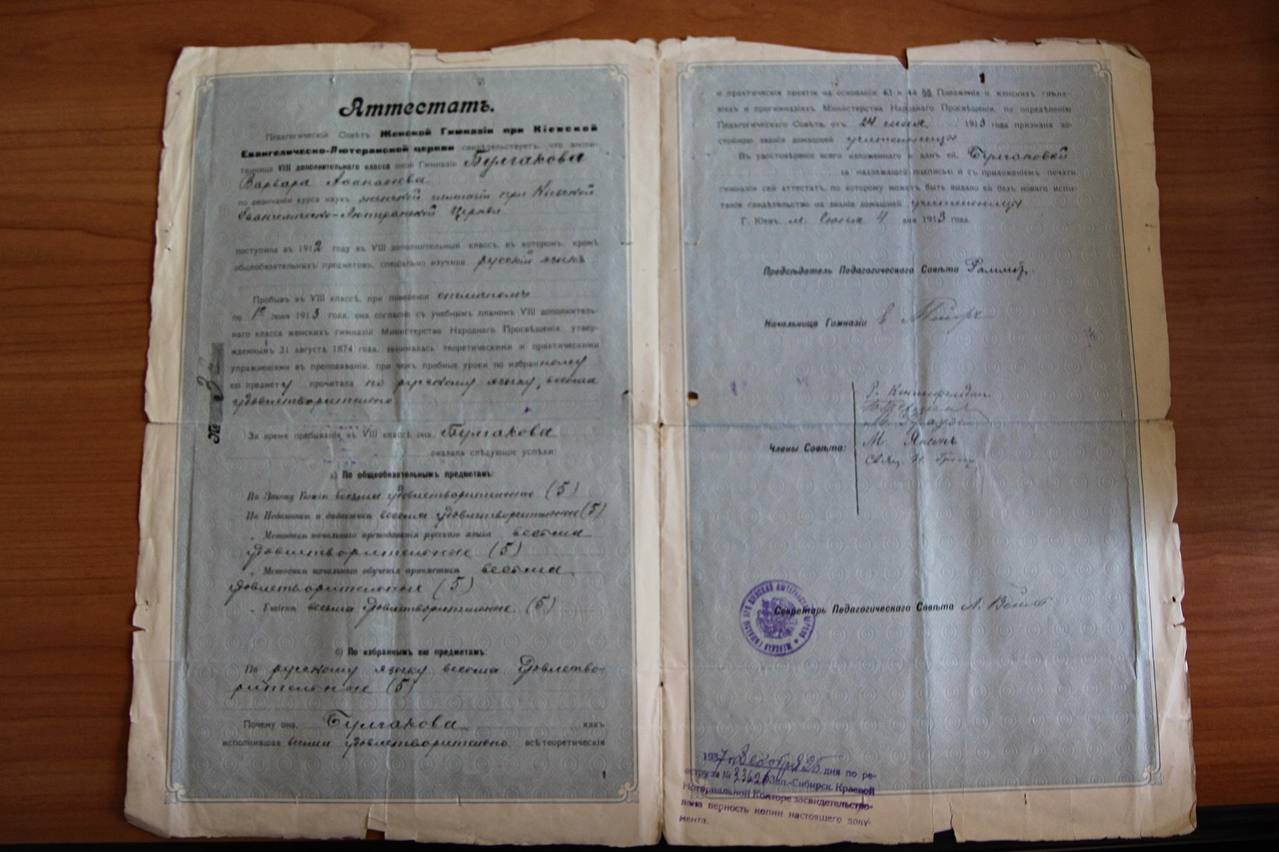 Аттестатъ.
Педагогическій Совѣтъ Женской Гимназіи при Кіевской
Евангелическо-Лютеранской церкви свидѣтельствуетъ, что воспи-
танница VIII дополнительнаго класса оной Гимназіи Булгакова
Варвара
по окончаніи курса наукъ женской гимназіи при Кіевской
Евангелическо-Лютеранской Церкви
поступила въ 1912 году въ VIII дополнительный классъ, въ которомъ, кромѣ
общеобязательныхъ предметовъ, спеціально изучала русскій языкъ
Пробывъ въ VIII классѣ, при поведеніи отличномъ
по 1е іюня 1913 года, она согласно съ учебнымъ планомъ VIII дополнитель-
наго класса женскихъ гимназій Министерства Народнаго Просвѣщенія, утвер-
жденнымъ 31 августа 1874 года, занималась теоретическими и практическими
упражненіями въ преподаваніи, при чемъ пробные уроки по избранному
ею предмету прочитала по русскому языку, весьма
удовлетворительно
№ 3
За время пребыванія въ VIII классѣ она, Булгакова
оказала слѣдующіе успѣхи:
а) По общеобязательнымъ предметамъ:
По Закону Божію весьма удовлетворительные (5)
По Педагогикѣ и дидактикѣ весьма удовлетворительные (5)
„ Методикѣ начальнаго преподаванія русскаго языка весьма
удовлетворительные (5)
„ Методикѣ начальнаго обученія ариѳметикѣ весьма
удовлетворительные (5)
„ Гигіенѣ весьма удовлетворительные (5)
б) По избраннымъ ею предметамъ:
По русскому языку весьма удовлетво-
рительные (5)
Почему она, Булгакова какъ
исполнившая весьма удовлетворительно всѣ теоретическія
1
и практическія занятія на основаніи 43 и 44 §§ Положенія о женскихъ гимна-
зіяхъ и прогимназіяхъ Министерства Народнаго Просвѣщенія, по опредѣленію
Педагогическаго Совѣта, отъ 1913 года признана до-
стойною званія домашней учительницы
Въ удостовѣреніе всего изложеннаго и данъ ей, Булгаковой
за надлежащею подписью и съ приложеніемъ печати
гимназіи сей аттестатъ, по которому можетъ быть выдано ей безъ новаго испы-
танія свидѣтельство на званіе домашней учительницы
Г. Кіевъ м. Іюня 4 дня 1913 года.
Предсѣдатель Педагогическаго Совѣта
Начальница Гимназіи
Члены Совѣта:
М. Янсонъ
Секретарь Педагогическаго Совѣта
1937 дня по ре-
естру за № Зап.-Сибирск. Краевой
Нотариальной Конторе засвидетельство-
вана верность копии настоящего доку-
мента.